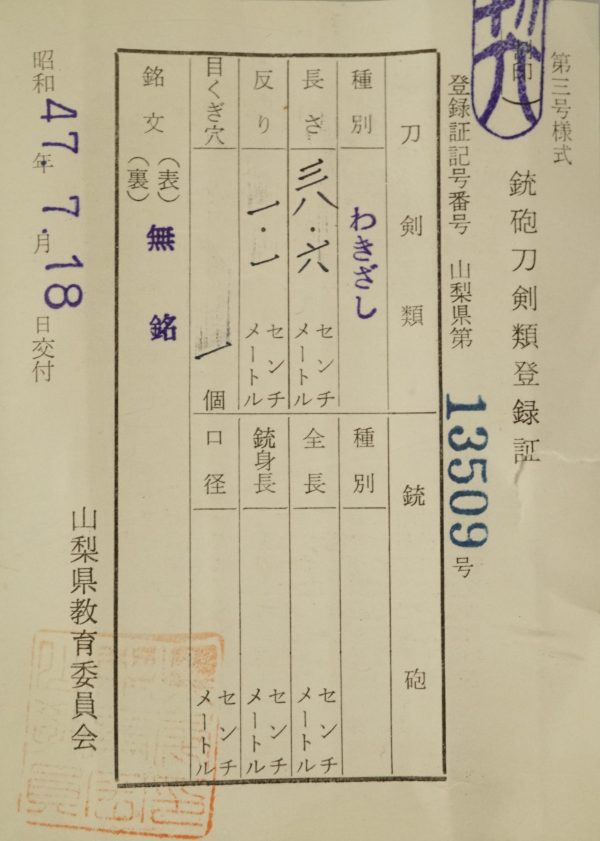 第三号様式
銃砲刀剣類登録証
登録証記号番号 山梨県第 13509 号
刀剣類
種別 わきざし
長さ 三八・六 センチメートル
反り 一・一 センチメートル
目くぎ穴 一 個
銘文 (表) 無銘
(裏)
銃砲
種別
全長 センチメートル
銃身長 センチメートル
口径 センチメートル
昭和 47年 7月 18日交付
山梨県教育委員会